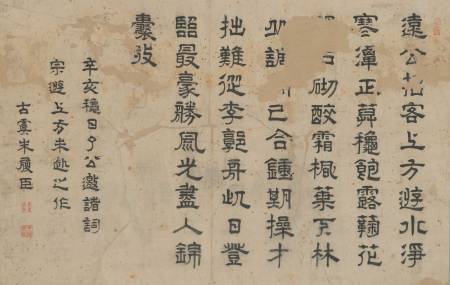 遠公招客上方遊水淨
寒潭正莫穐飽露蘜花
石砌霜楓葉下林
丘誰已合鍾期操才
拙難從李郭舟此日登
臨最豪勝風光盡入錦
囊收
辛亥穐日了公邀諸詞
宗遊上方未赴之作
古虞朱履臣